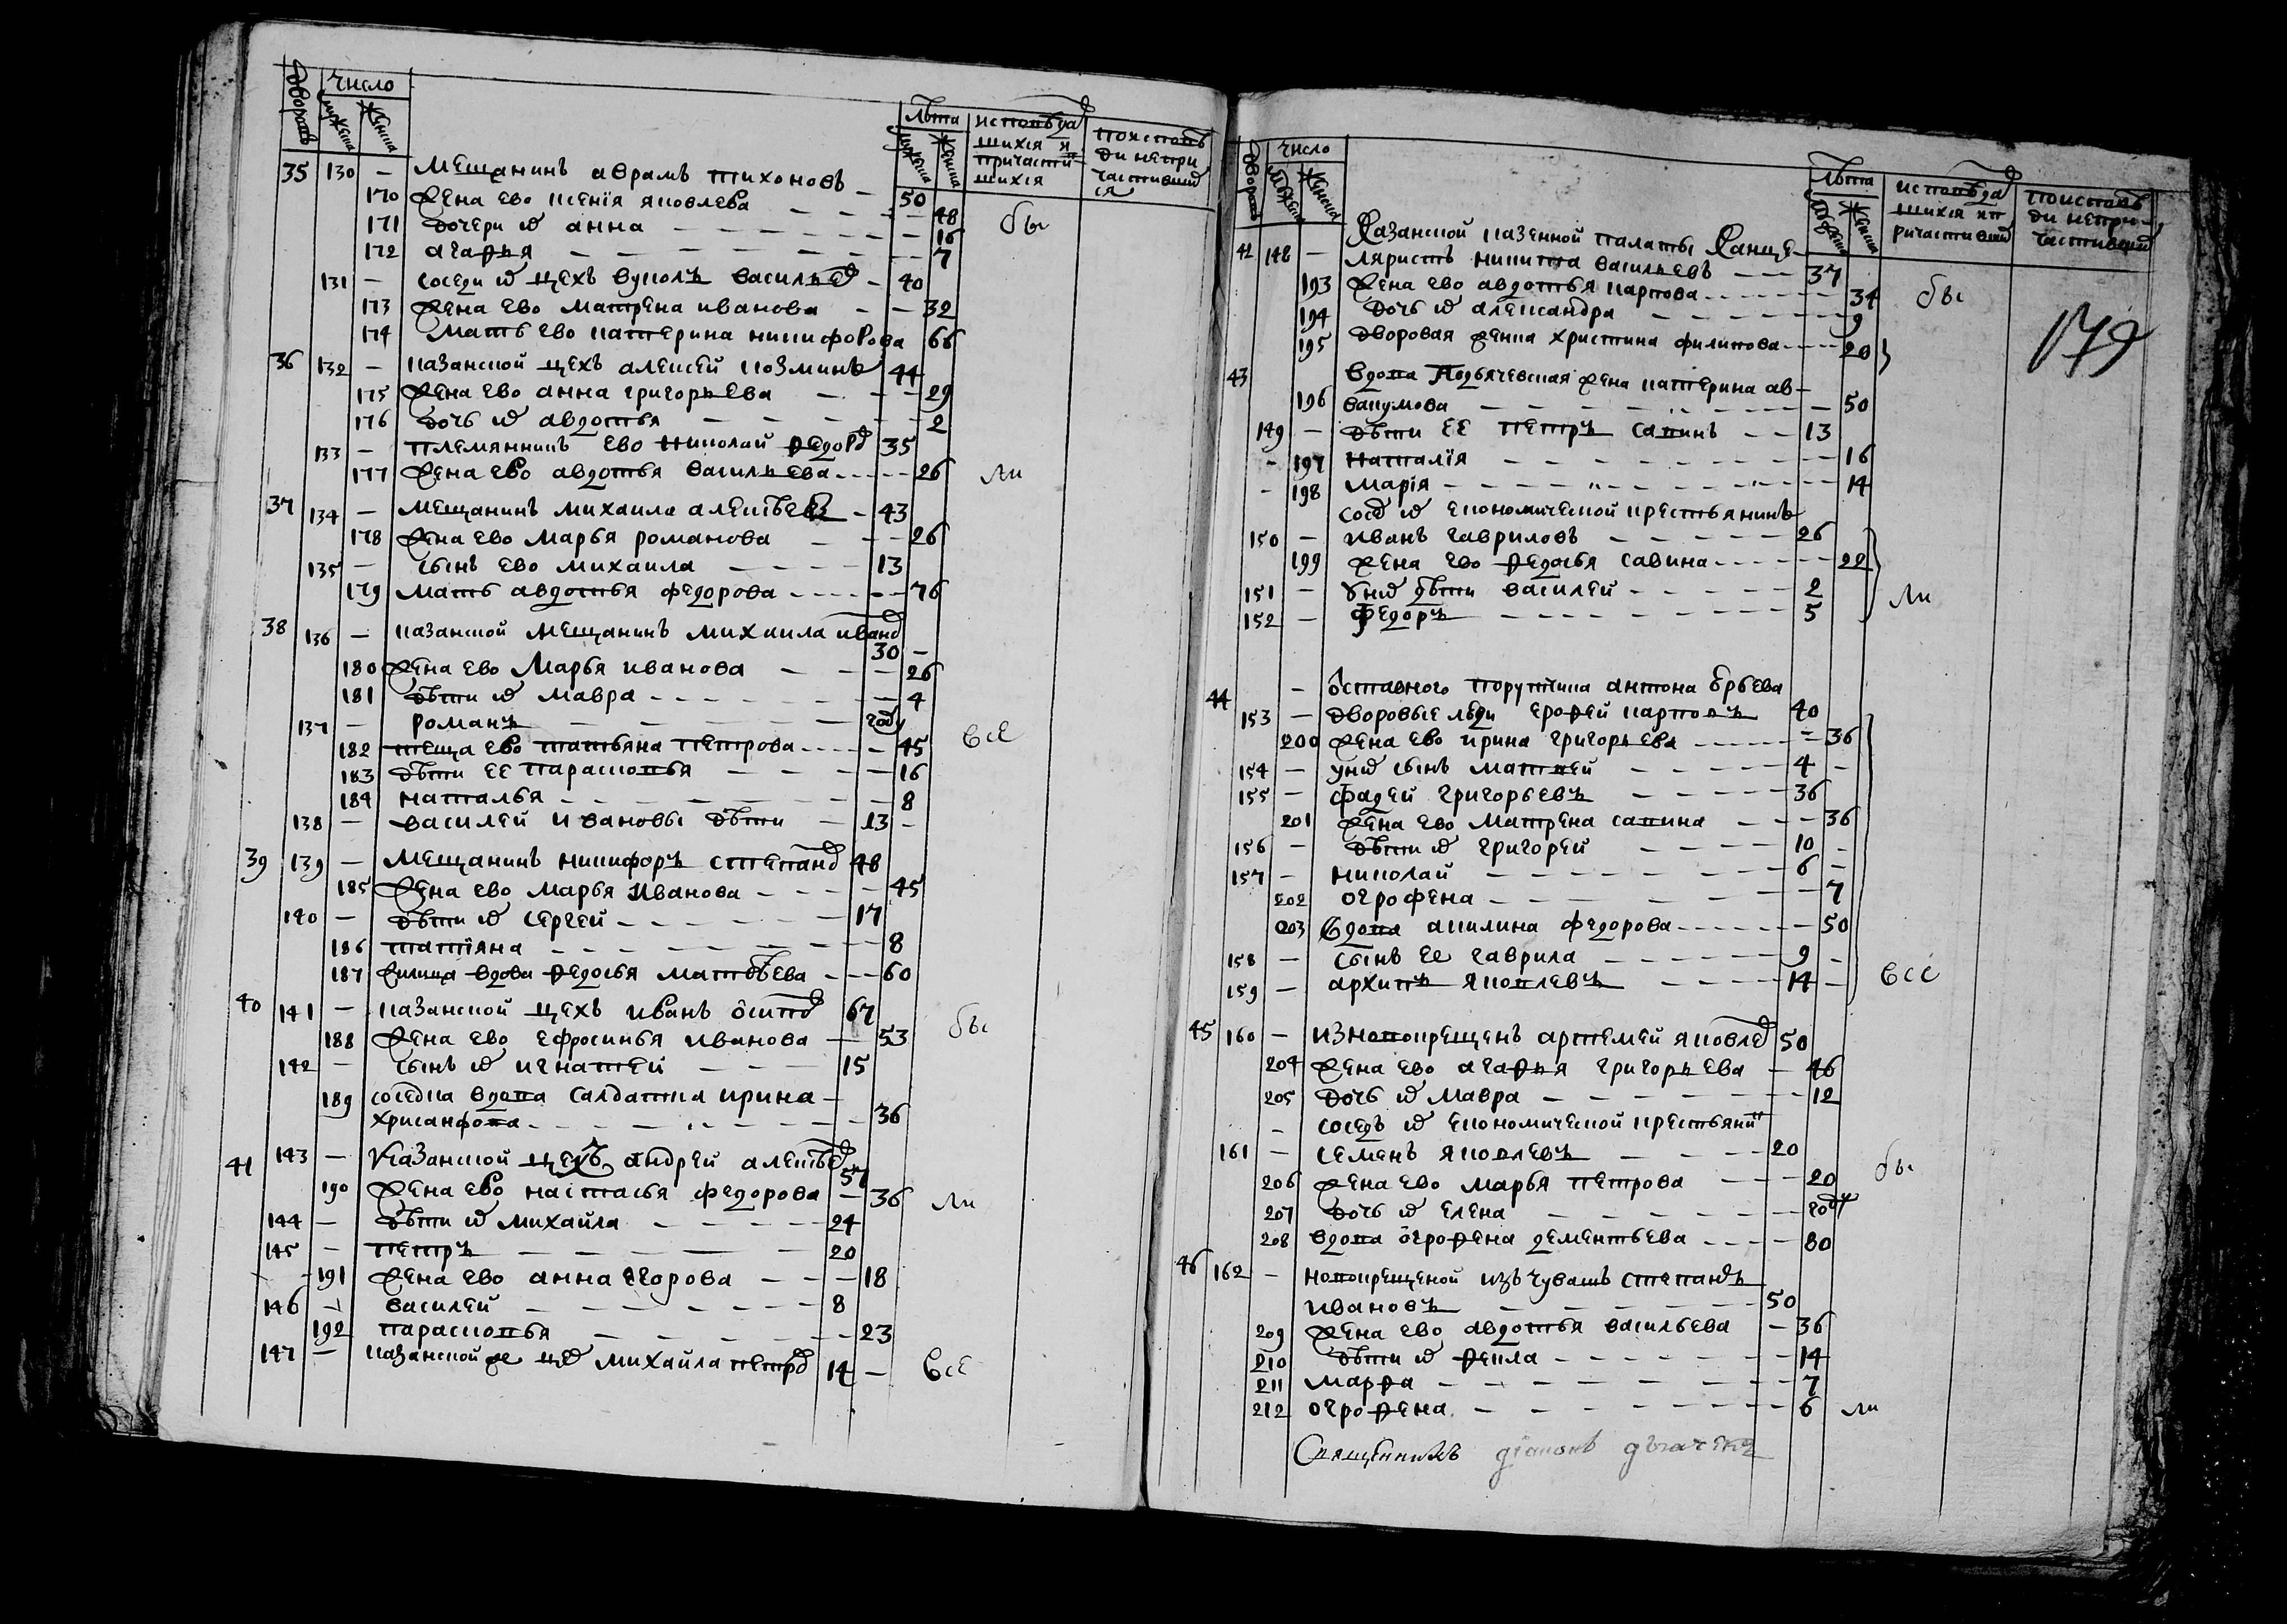 дворовъ число лѣта исповѣда поисповѣ
мужеска женска мужеска женска шихся и ди непри
причасти частивших
шихся ся
35 130 – мещанинъ аврамъ тихоновъ – 50
170 жена ево ксенїя яковлева – – – 48 бы
171 дочери их анна – – – 16
172 агафья – – – 7
131 – соседи их цехъ вуколъ васильев – 40
173 жена ево матрена иванова – – 32
174 мать ево катерина никифорова 66
36 132 – казанской цехъ алексей козминъ 44
175 жена ево анна григорьева – – – 29
176 дочь их авдотья – – – 2
133 – племянникъ ево николай федоров 35
177 жена ево авдотья васильева – – – 26 ли
37 134 – мещанинъ михаила алексѣев – 43
178 жена ево марья романова – – – 26
135 – сынъ ево михаила – – – 13
179 мать авдотья федорова – – – 76
38 136 – казанской мещанинъ михаила иванов
30 –
180 жена ево марья иванова – – – 26
181 дѣти их мавра – – – 4
137 – романъ – – – году
182 теща ево татьяна петрова – – – 45 все
183 дѣти ее парасковья – – – 16
184 наталья – – – 8
138 – василей ивановы дѣти – 13 –
39 139 – мещанинъ никифоръ степанов 48
185 жена ево марья иванова – – – 45
140 – дѣти их сергей – – – 17
186 татїяна – – – 8
187 вдова федосья матвѣева – – – 60
40 141 – казанской цехъ иванъ осипов 67
188 жена ево ефросинья иванова – 53 бы
142 – сынъ их игнатей – – – 15
189 соседка вдова салдатка ирина –
хрисанфова – – – 36
41 143 – казанской цехъ андрей алексѣев 57
190 жена ево настасья федорова – 36 ли
144 – дѣти их михайла – – – 24
145 – петръ – – – 20
191 жена ево анна егорова – – – 18
146 – василей – – – 8
192 парасковья – – – 23
147 – казанской же цех михайла петров 14 – все
дворовъ число лѣта исповѣда поисповѣ
мужеска женска мужеска женска шихся ип ди непри-
ричастивших частивших
179
42 148 – казанской казенной палаты канце–
ляристъ никита васильевъ – – 37
193 жена ево авдотья карпова – – – 34 бы
194 дочь их александра – – – 9
195 дворовая женка христина филипова – – – 20
43 вдова подьяческая жена катерина ав–
196 вакумова – – – 50
149 – дѣти ее петръ савинъ – – 13
– 197 наталїя – – – 16
– 198 марїя – – – 14
сосед их економической крестьянинъ
150 – иванъ гавриловъ – – – 26
199 жена ево федосья савина – – – 22
151 – у них дѣти василей – – – 2 ли
152 – федоръ – – – 5
44 – отставного порутчика антона юрьева
153 – дворовые люди ерофей карповъ 40
200 жена ево ирина григорьева – – – 36
154 – у них сынъ матвей – – – 4 –
155 – фадей григорьевъ – – – 36
201 жена ево матрена савина – – – 36
156 – дѣти их григорей – – – 10 –
157 – николай – – – 6 –
202 огрофена – – – 7
203 вдова акилина федорова – – – 50
158 – сынъ ее гаврила – – – 9 –
159 – архипъ яковлевъ – – – 14 – все
45 160 – из новокрещенъ артемей яковлев 50
204 жена ево агафья григорьева – 46
205 дочь их мавра – – – 12
– соседъ их економической крестьянин
161 – семенъ яковлевъ – – – 20
206 жена ево марья петрова – – – 20 бы
207 дочь их елена – – – году
208 вдова огрофена дементьева – – – 80
46 162 – новокрещеной изъ чувашъ степанъ
ивановъ – – – 50
209 жена ево авдотья васильева – 36
210 дѣти их фекла – – – 14
211 марфа – – – 7
212 огрофена – – – 6 ли
Священникъ